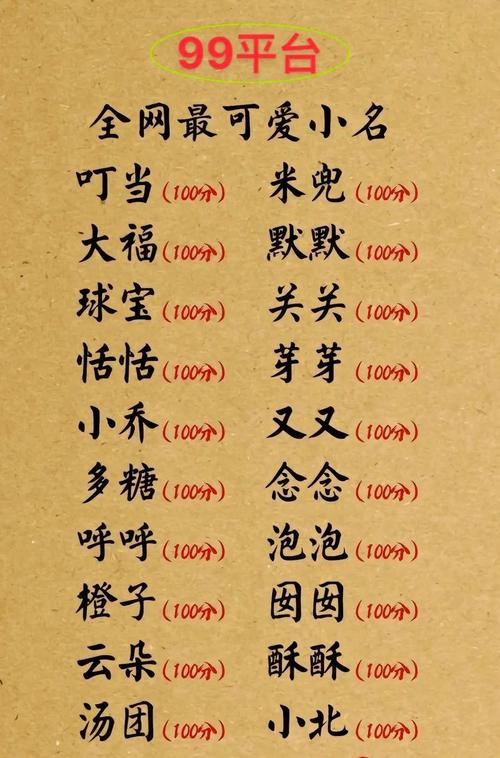 99平台
全网最可爱小名
叮当(100分) 米兜(100分)
大福(100分) 默默(100分)
球宝(100分) 关关(100分)
恬恬(100分) 芽芽(100分)
小乔(100分) 又又(100分)
多糖(100分) 念念(100分)
呼呼(100分) 泡泡(100分)
橙子(100分) 囡囡(100分)
云朵(100分) 酥酥(100分)
汤团(100分) 小北(100分)